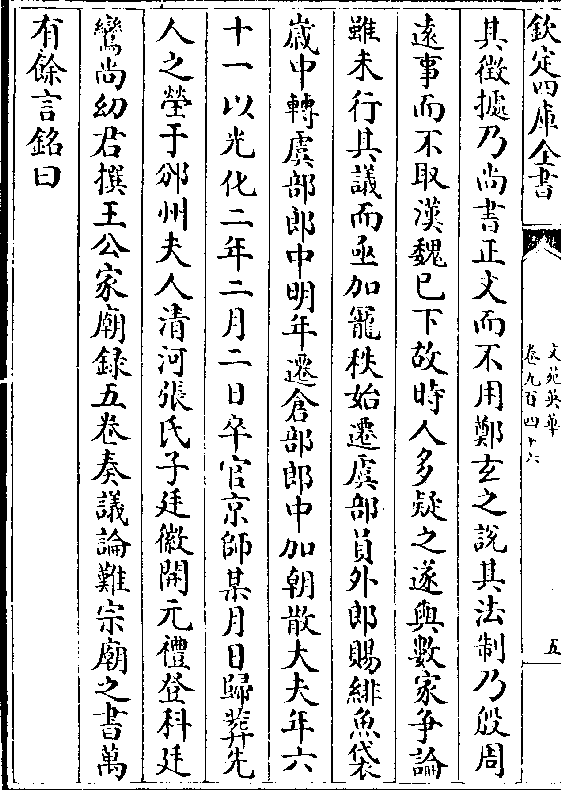 欽定四庫全書
文苑英華
卷九百四十六
五
其徵據乃尚書正文而不用鄭玄之說其法制乃殷周
遠事而不取漢魏已下故時人多疑之遂與數家爭論
雖未行其議而亟加寵秩始遷虞部員外郎賜緋魚袋
歲中轉虞部郎中明年遷倉部郎中加朝散大夫年六
十一以光化二年二月二日卒官京師某月日歸葬先
人之塋于邠州夫人清河張氏子廷徽開元禮登科廷
鸞尚幼君撰王公家廟録五卷奏議論難宗廟之書萬
有餘言銘曰